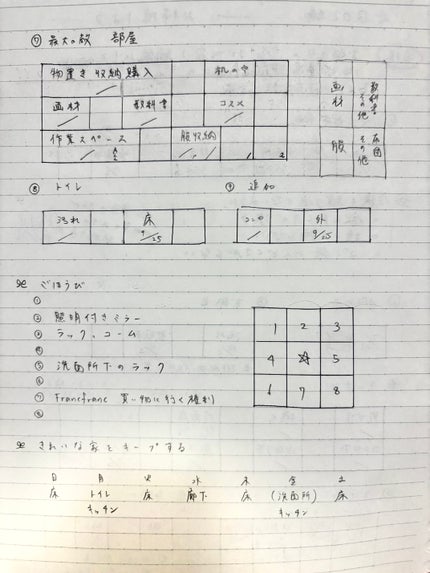 ⑦ 最大の敵 部屋
物置き収納購入 机の中
画材 教科書 コスメ
作業スペース 服収納
1 2
画材 教科書 その他
服 布団 その他
⑧ トイレ
⑨ 追加
汚れ 床 9/25
外 9/25
ごほうび
①
② 照明付きミラー
③ ラック、コーム
④
⑤ 洗面所下のラック
⑥
⑦ Francfranc 買い物に行く権利
⑧
1 2 3
4 ☆ 5
6 7 8
きれいな家をキープする
日 月 火 水 木 金 土
床 トイレ 床 廊下 床 (洗面所) 床
キッチン キッチン